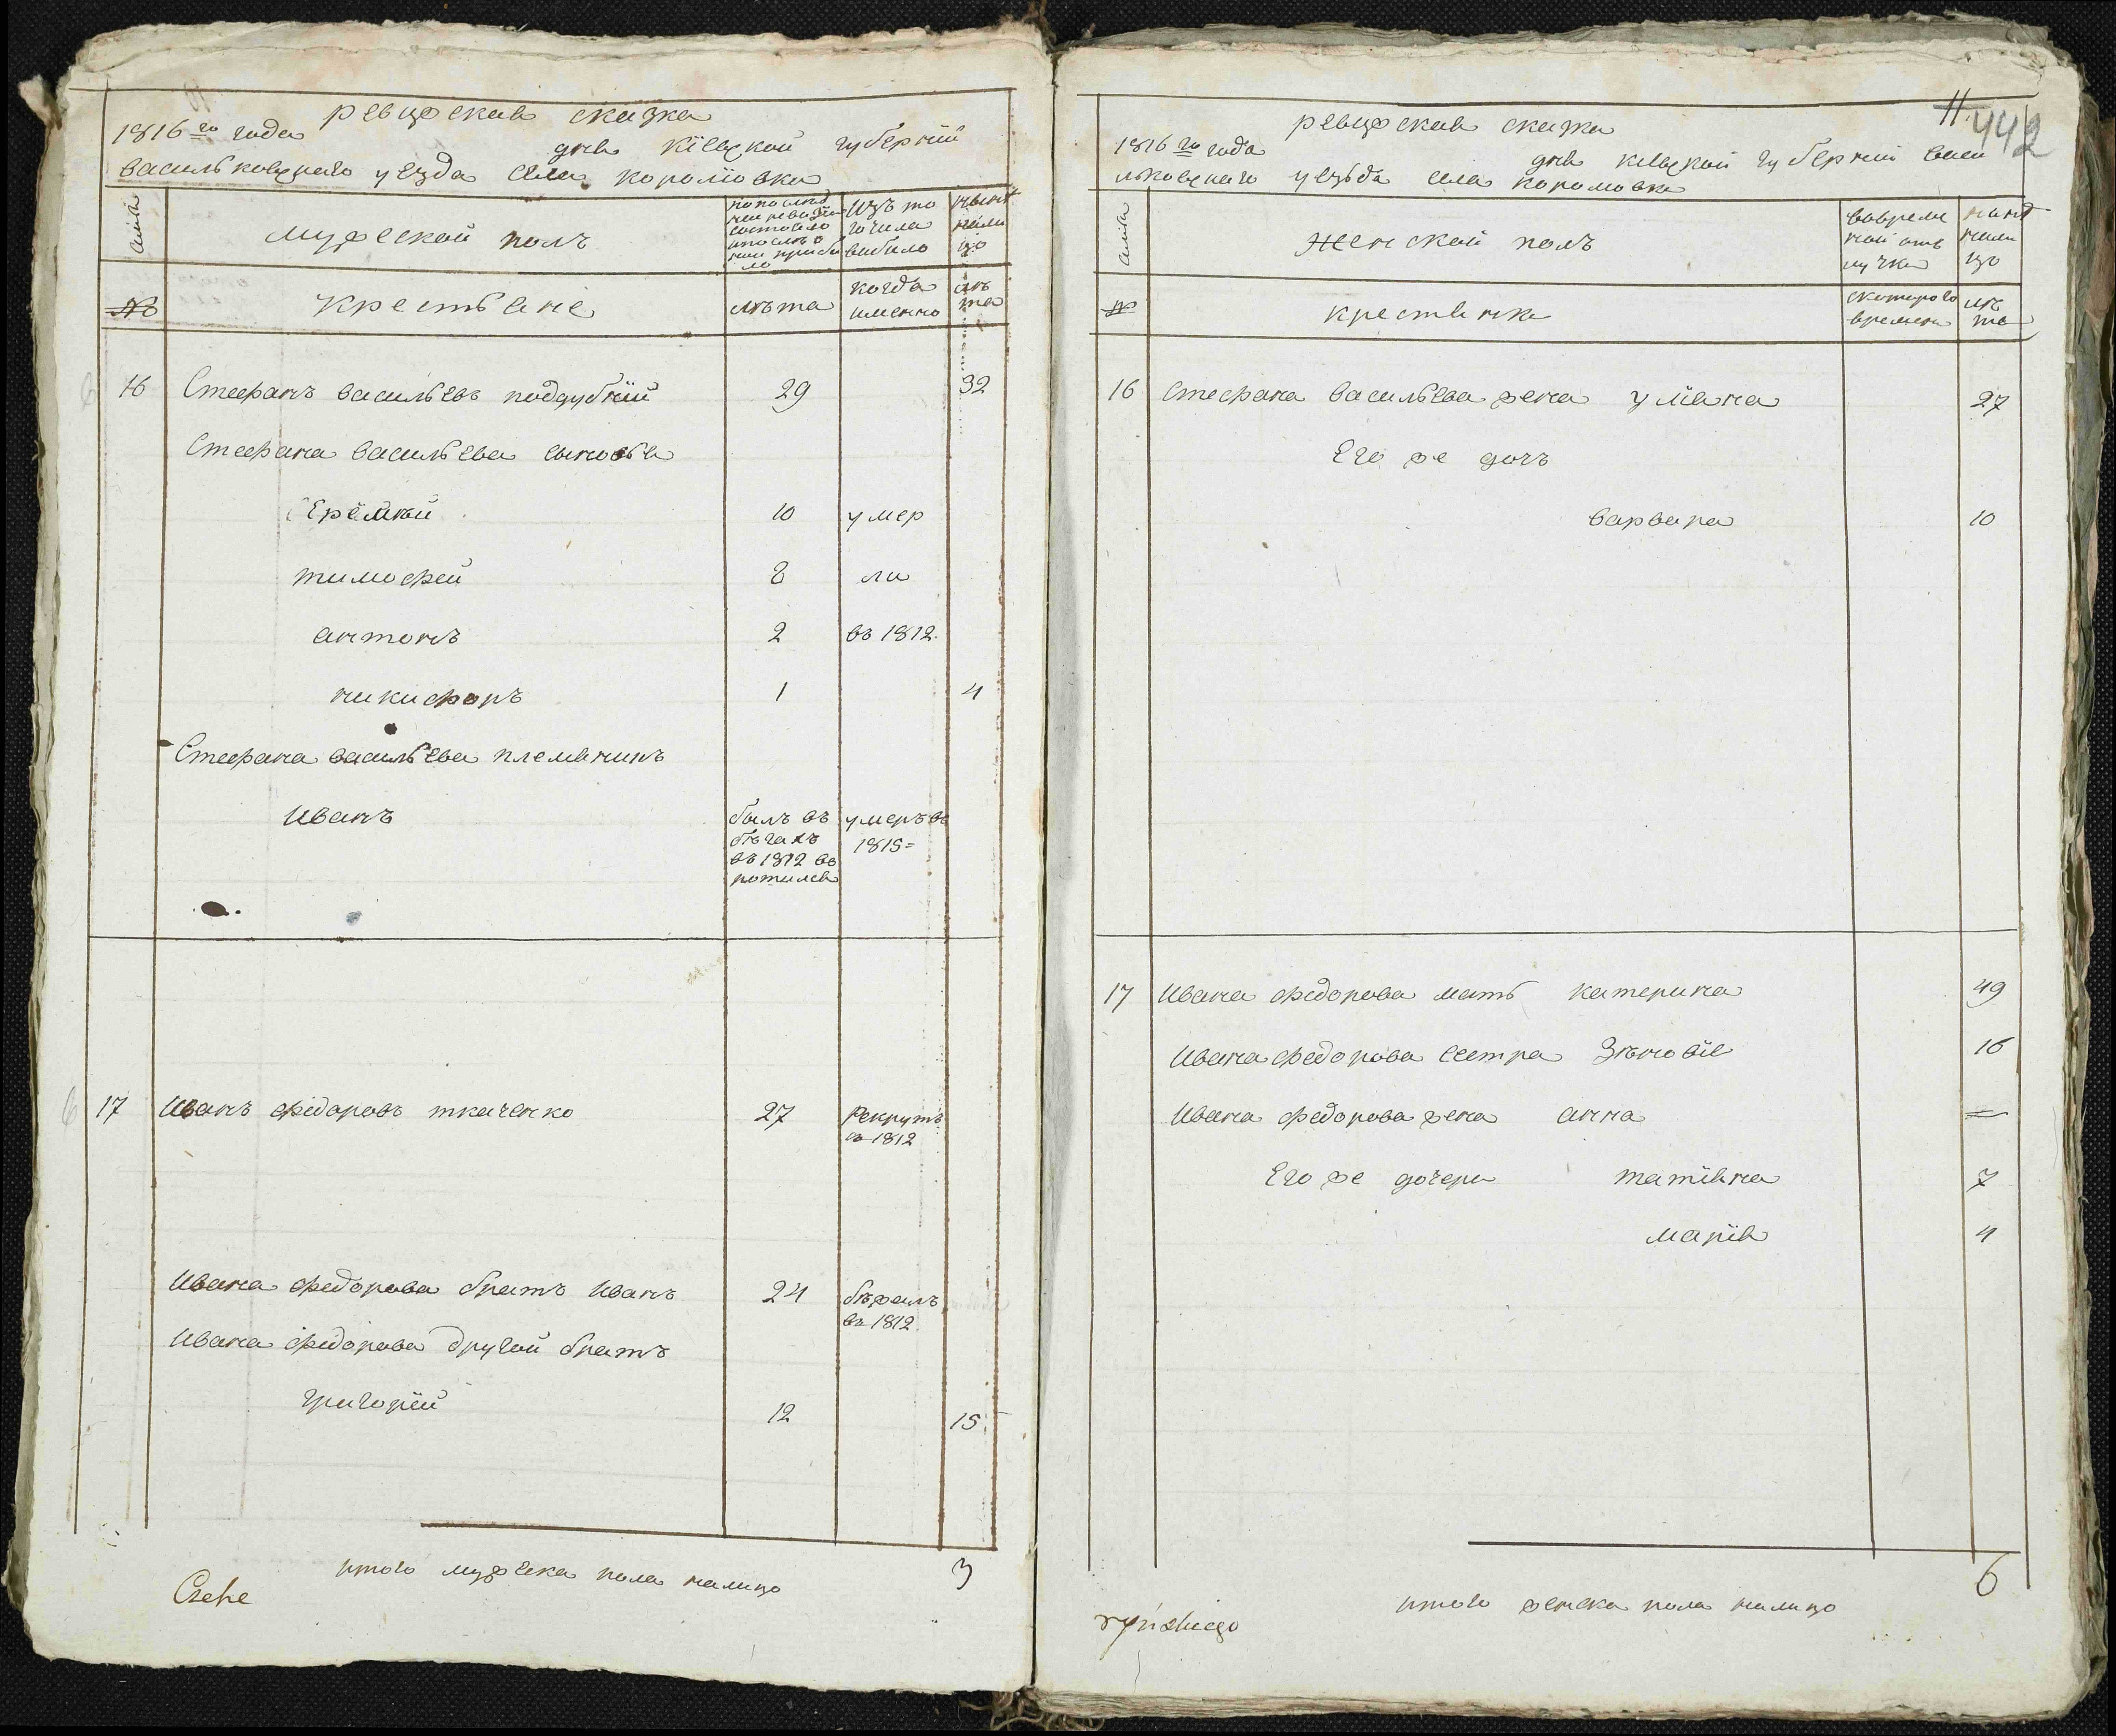 ревизская сказка
1816го года дня Кіевской губерніи
васильковскаго уезда села королювки
семіи
мужеской полъ
по последней ревизіи состояло и после оной прибыло
изъ того числа выбыло
ныне на лицо
№
крестьяне
лѣта
когда именно
лѣта
16 Стефанъ васильевъ поддубній 29 32
Стефана васильева сыновья
Ерéмѣй 10 умер
тимофей 8 ли
антонъ 2 въ 1812.
никифоръ 1 4
Стефана васильева племянникъ
Иванъ
былъ въ бѣгахъ въ 1812 воротился
умеръ въ 1815=
17 Иванъ фёдоровъ ткаченко 27 рекрутъ въ 1812
Ивана федорова братъ Иванъ 24 бѣжалъ въ 1812.
Ивана федорова другой братъ
григорій 12 15
итого мужеска пола налицо 3
Czehe
11. 442
ревизская сказка
1816го года дня кіевской губерніи васи
льковскаго уезьда села королювки
семіи
женской полъ
во временной отлучке
ныне на лицо
№
крестянки
с котораго времени
лѣта
16 стефана васильева жена уліяна 27
Его же дочъ
варвара 10
17 Ивана федорова мать катерина 49
Ивана федорова сестра Зѣновія 16
Ивана федорова жена анна =
Его же дочери татіяна 7
марія 4
итого женска пола налицо 6
ryńskiego